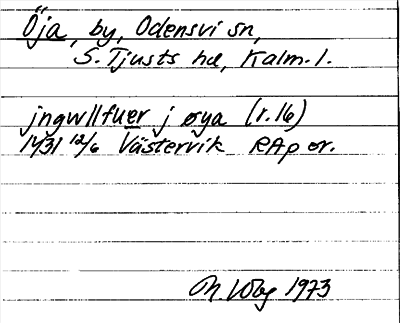 Öja, by, Odensvi sn,
S. Tjusts hd, Kalm. l.
jngwllfuer j øya (r. 16)
1431 12/6 Västervik RAp or.
1973